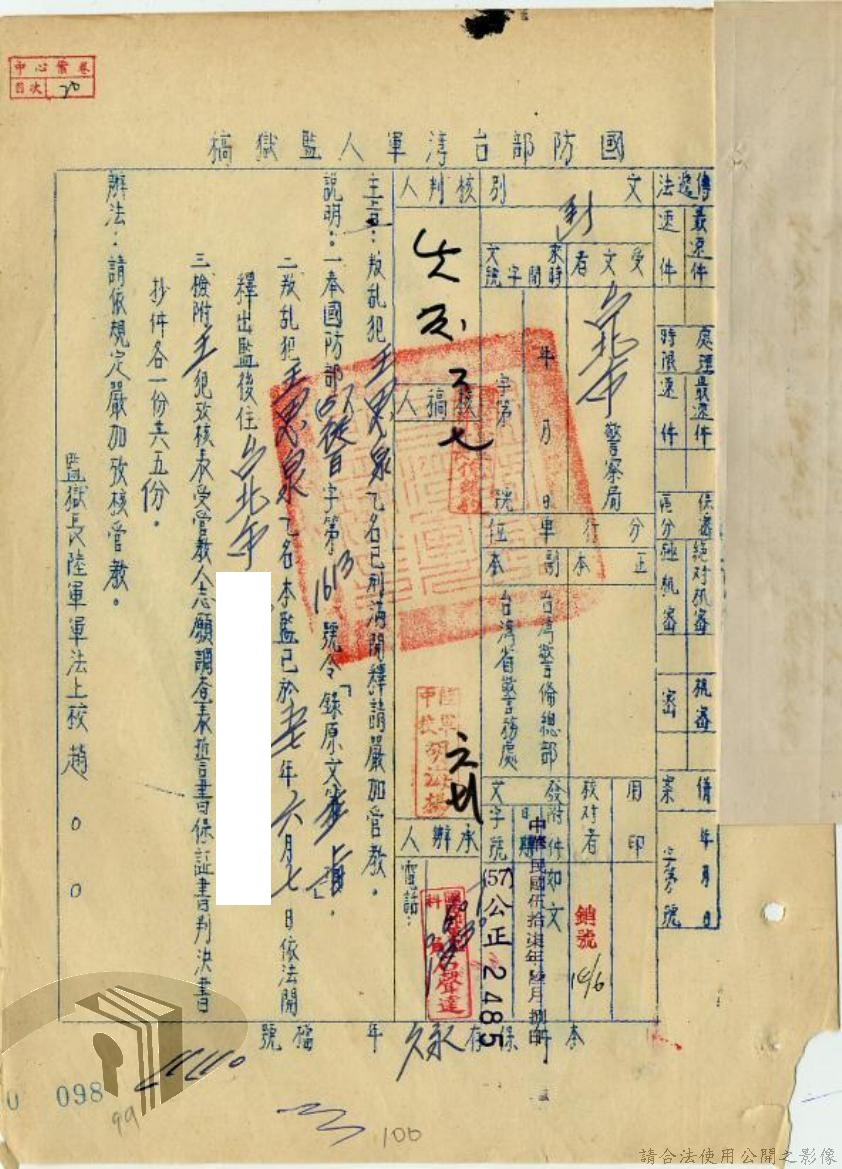 中心案卷
目次 20
國防部台灣軍人監獄稿
傳遞法 最速件 速件
處理時限 最速件 速件
保密區分 絕對机密 極机密 机密 密
備案 年 月 日 字第 號
文別 函
受文者 台北市警察局
來文時間字號 年 月 日 字第 號
分行單位
正本
副本 台灣警備總部 台灣省警務處
用印
校对者
銷號
發文
附件 如文
日期 中華民國伍拾柒年陸月捌日
字號 (57)公正2485
核判人
核稿人
承辦人
電話：
主旨：叛乱犯王思泉乙名已刑滿開釋請嚴加管教。
說明：一奉國防部(57)字第1613號令「錄原文
二叛乱犯王思泉乙名本監已於五七年六月七日依法開
釋出監後住台北市
三檢附王犯攷核表受管教人志願調查表誓言書保証書判決書
抄件各一份共五份。
辦法：請依規定嚴加攷核管教。
監獄長陸軍軍法上校趙○○
本件保存 永久 年
檔號
098
99
100
請合法使用公開之影像